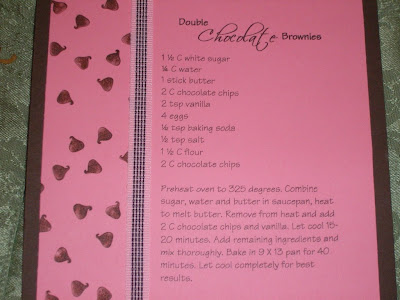 Double
Chocolate Brownies
1 ½ C white sugar
¼ C water
1 stick butter
2 C chocolate chips
2 tsp vanilla
4 eggs
½ tsp baking soda
½ tsp salt
1 ½ C flour
2 C chocolate chips
Preheat oven to 325 degrees. Combine
sugar, water and butter in saucepan, heat
to melt butter. Remove from heat and add
2 C chocolate chips and vanilla. Let cool 15-
20 minutes. Add remaining ingredients and
mix thoroughly. Bake in 9 X 13 pan for 40
minutes. Let cool completely for best
results.